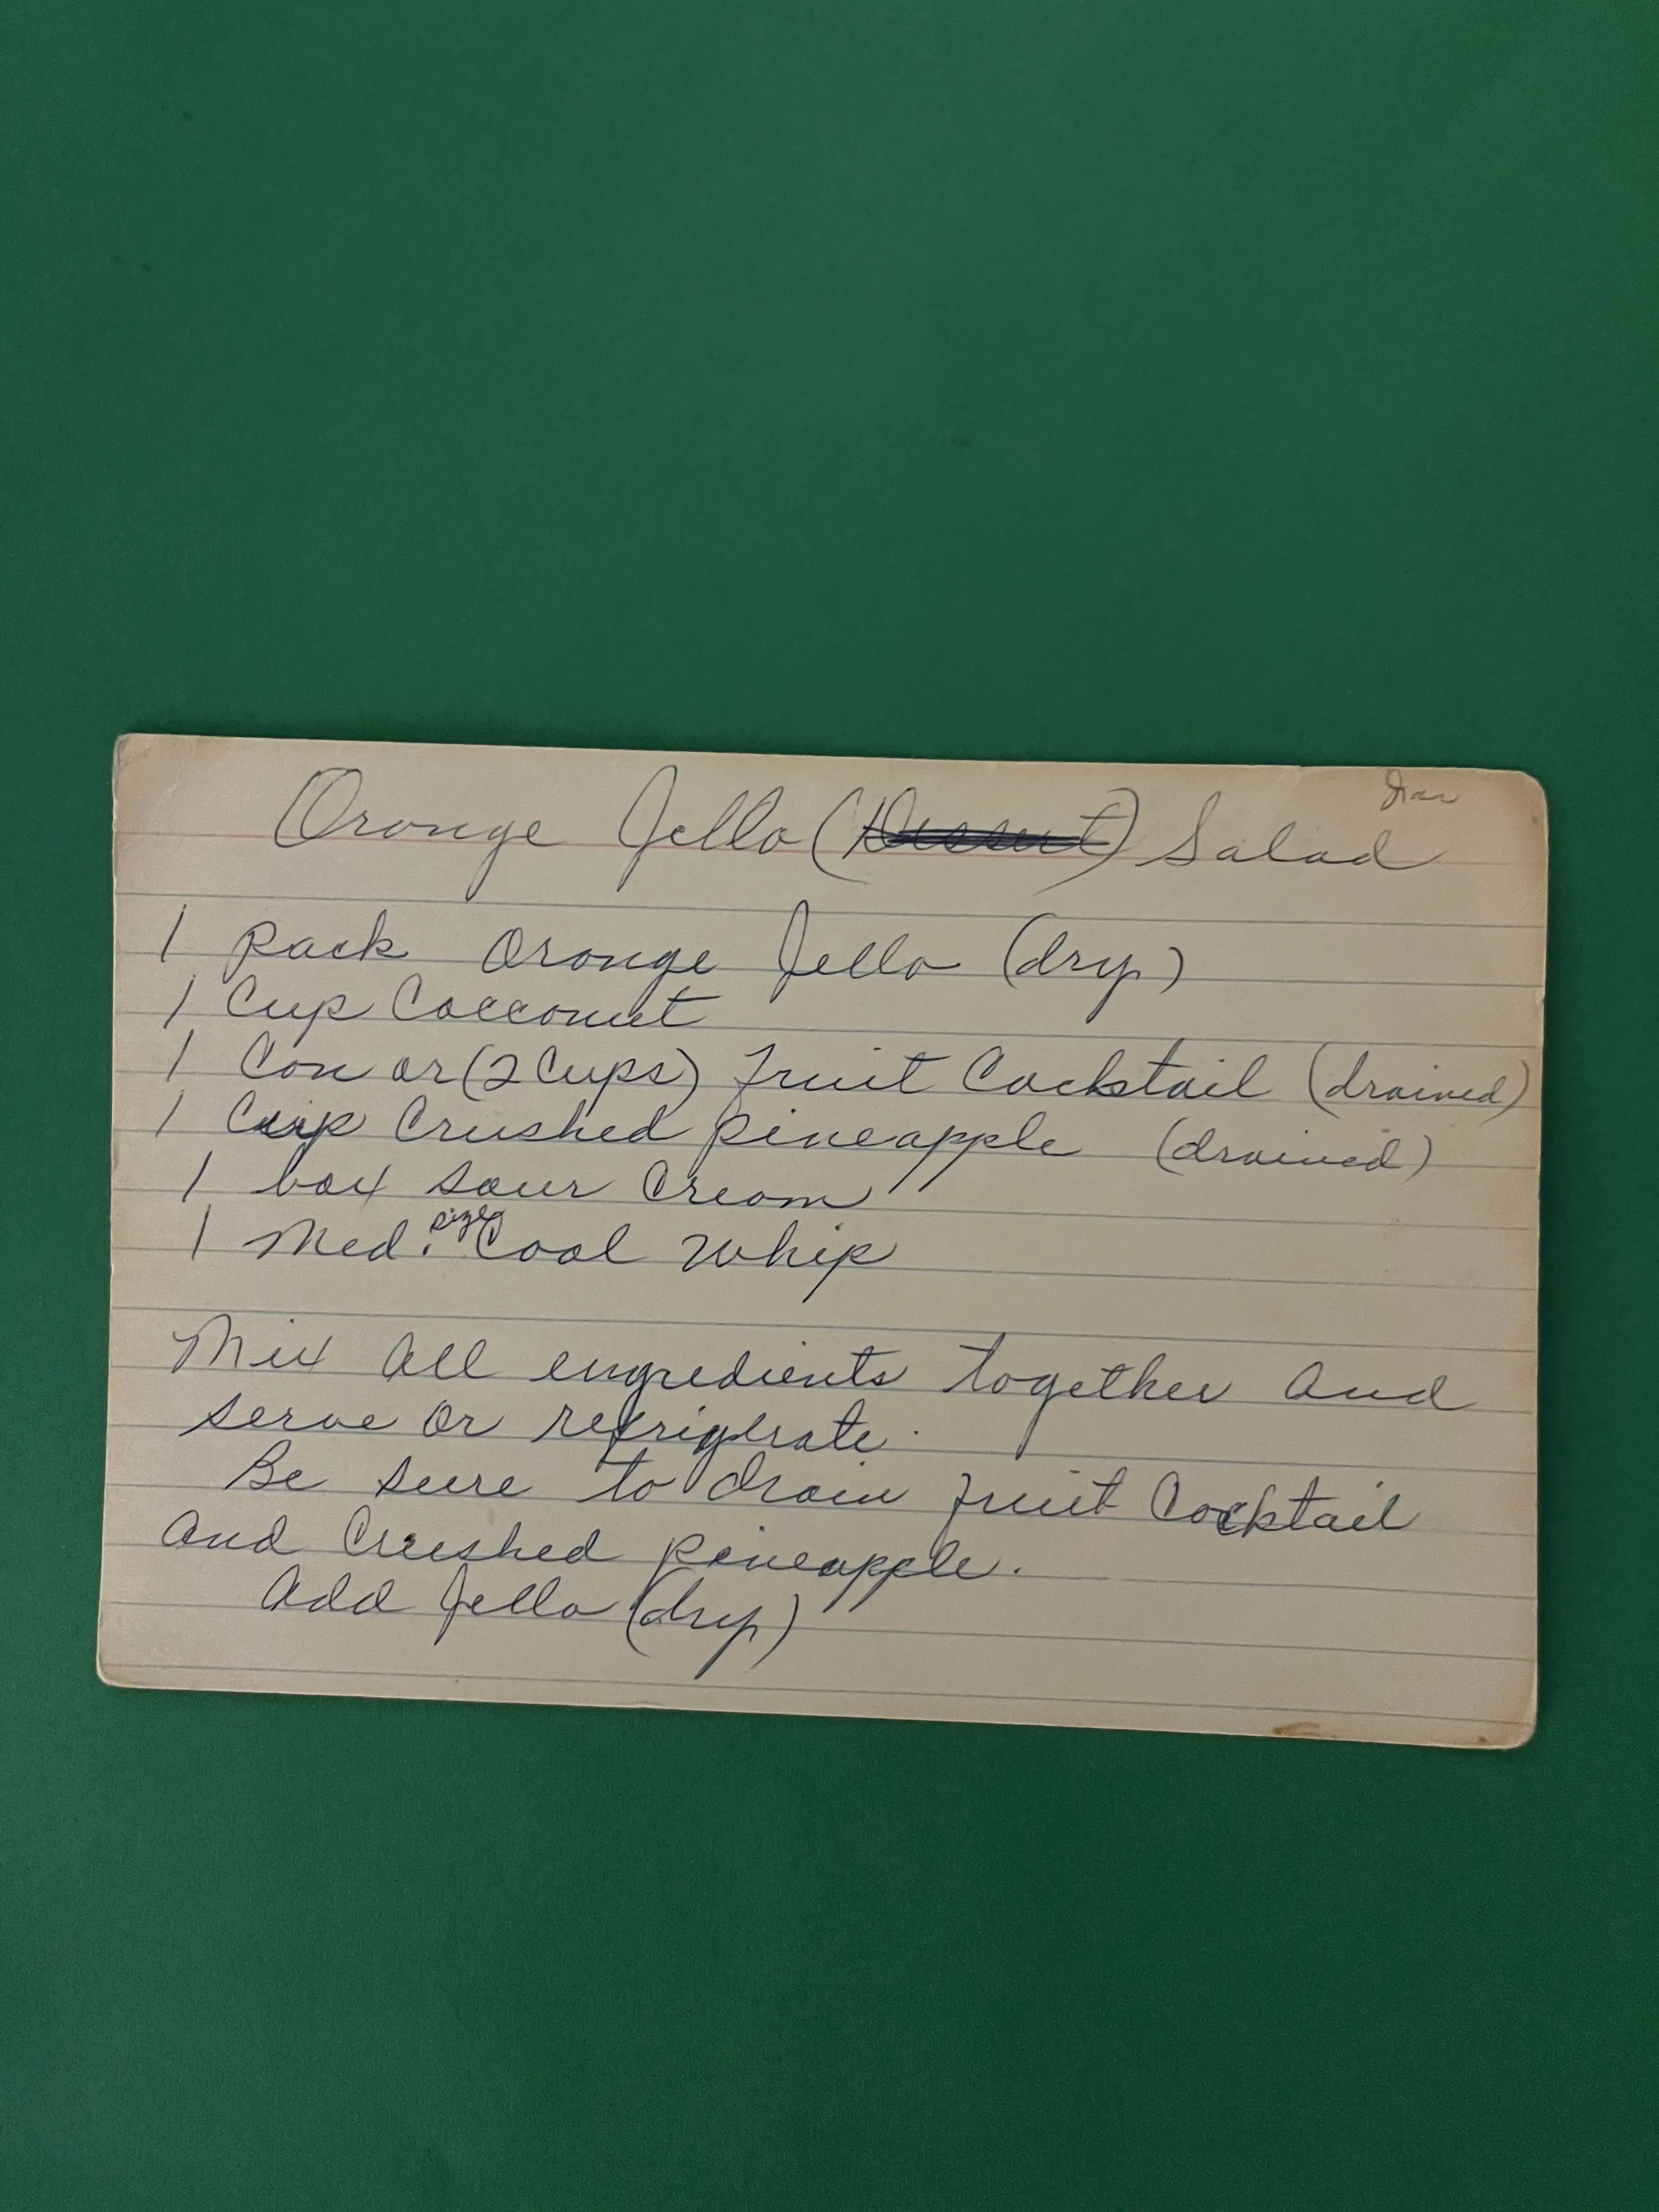 Orange Jello (Dessert) Salad
1 pack Orange Jello (dry)
1 Cup Cocconut
1 Can or (2 Cups) Fruit Cocktail (drained)
1 Cup Crushed pineapple (drained)
1 box sour Cream
1 Med. size Cool Whip
Mix all engredients together and
serve or refrigerate.
Be sure to drain fruit Cocktail
and Crushed pineapple.
Add Jello (dry)